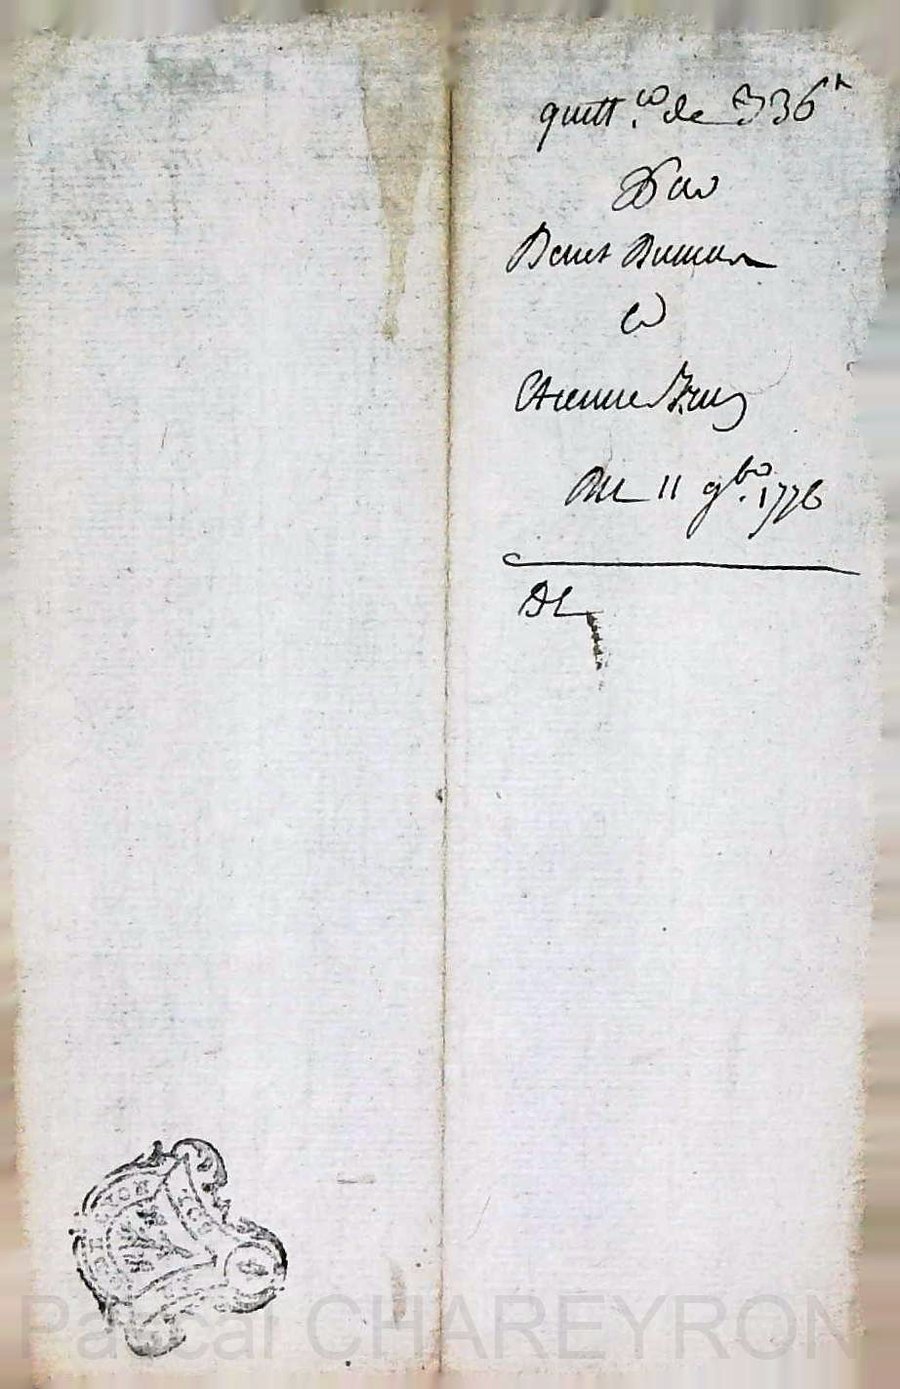 quitt.ce de 336 ₶
Pour
Denis Dumas
Et
Etienne Bruz
Du 11 9bre. 1776
DL
Pascal CHAREYRON